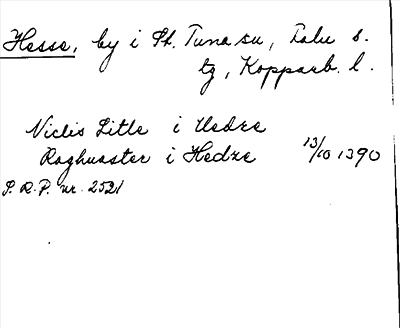 Hesse, by i St. Tuna sn, Falu s.
tg, Kopparb. l.
Niclis Litle i Hedre
Raghuaster i Hedze 13/10 1390
S.R.P. nr 2521